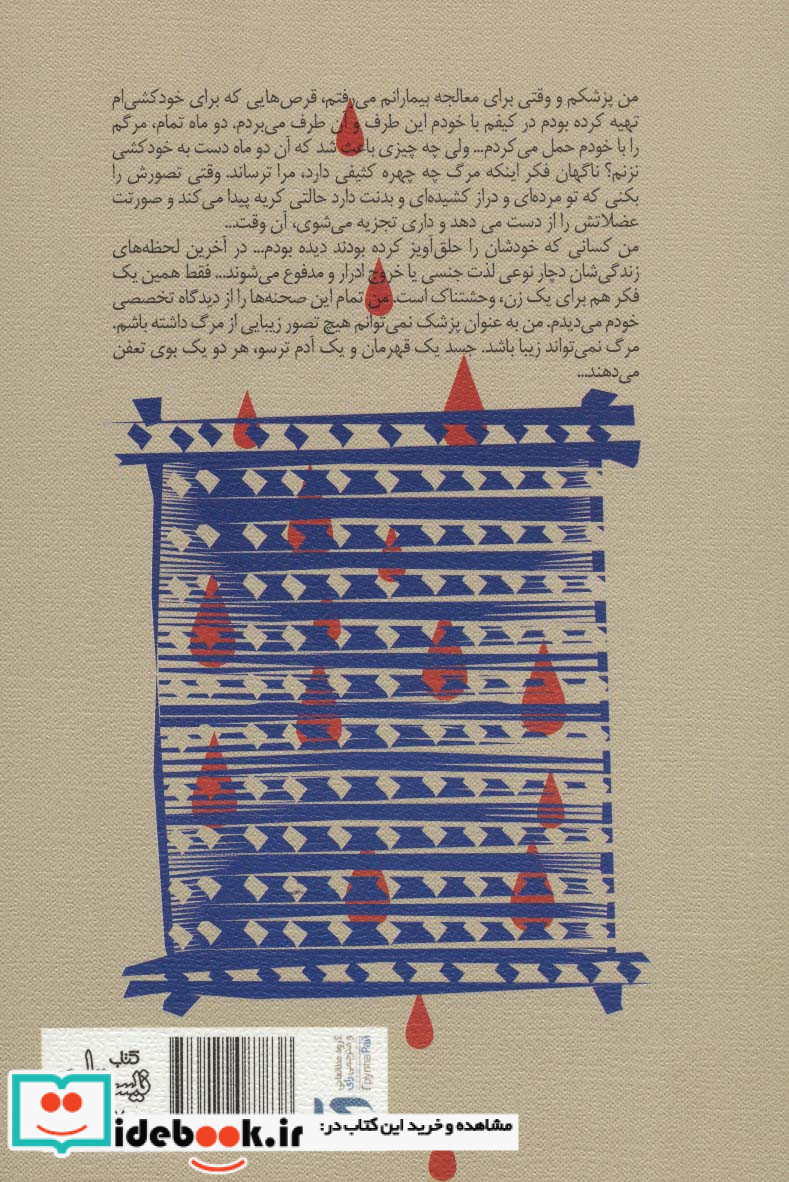 من پزشکم و وقتی برای معالجه بیمارانم می‌رفتم، قرص‌هایی که برای خودکشی‌ام
تهیه کرده بودم در کیفم با خودم این طرف و آن طرف می‌بردم. دو ماه تمام، مرگم
را با خودم حمل می‌کردم... ولی چه چیزی باعث شد که آن دو ماه دست به خودکشی
نزنم؟ ناگهان فکر اینکه مرگ چه چهره کثیفی دارد، مرا ترساند. وقتی تصورش را
بکنی که تو مرده‌ای و دراز کشیده‌ای و بدنت دارد حالتی کریه پیدا می‌کند و صورتت
عضلاتش را از دست می دهد و داری تجزیه می‌شوی، آن وقت...
من کسانی که خودشان را حلق‌آویز کرده بودند دیده بودم... در آخرین لحظه‌های
زندگی‌شان دچار نوعی لذت جنسی یا خروج ادرار و مدفوع می‌شوند... فقط همین یک
فکر هم برای یک زن، وحشتناک است. من تمام این صحنه‌ها را از دیدگاه تخصصی
خودم می‌دیدم. من به عنوان پزشک نمی‌توانم هیچ تصور زیبایی از مرگ داشته باشم.
مرگ نمی‌تواند زیبا باشد. جسد یک قهرمان و یک آدم ترسو، هر دو یک بوی تعفن
می‌دهند...
کتاب
گروه مطالعاتی
و مترجمی رای
Группа Рай
مشاهده و خرید این کتاب در:
idebook.ir